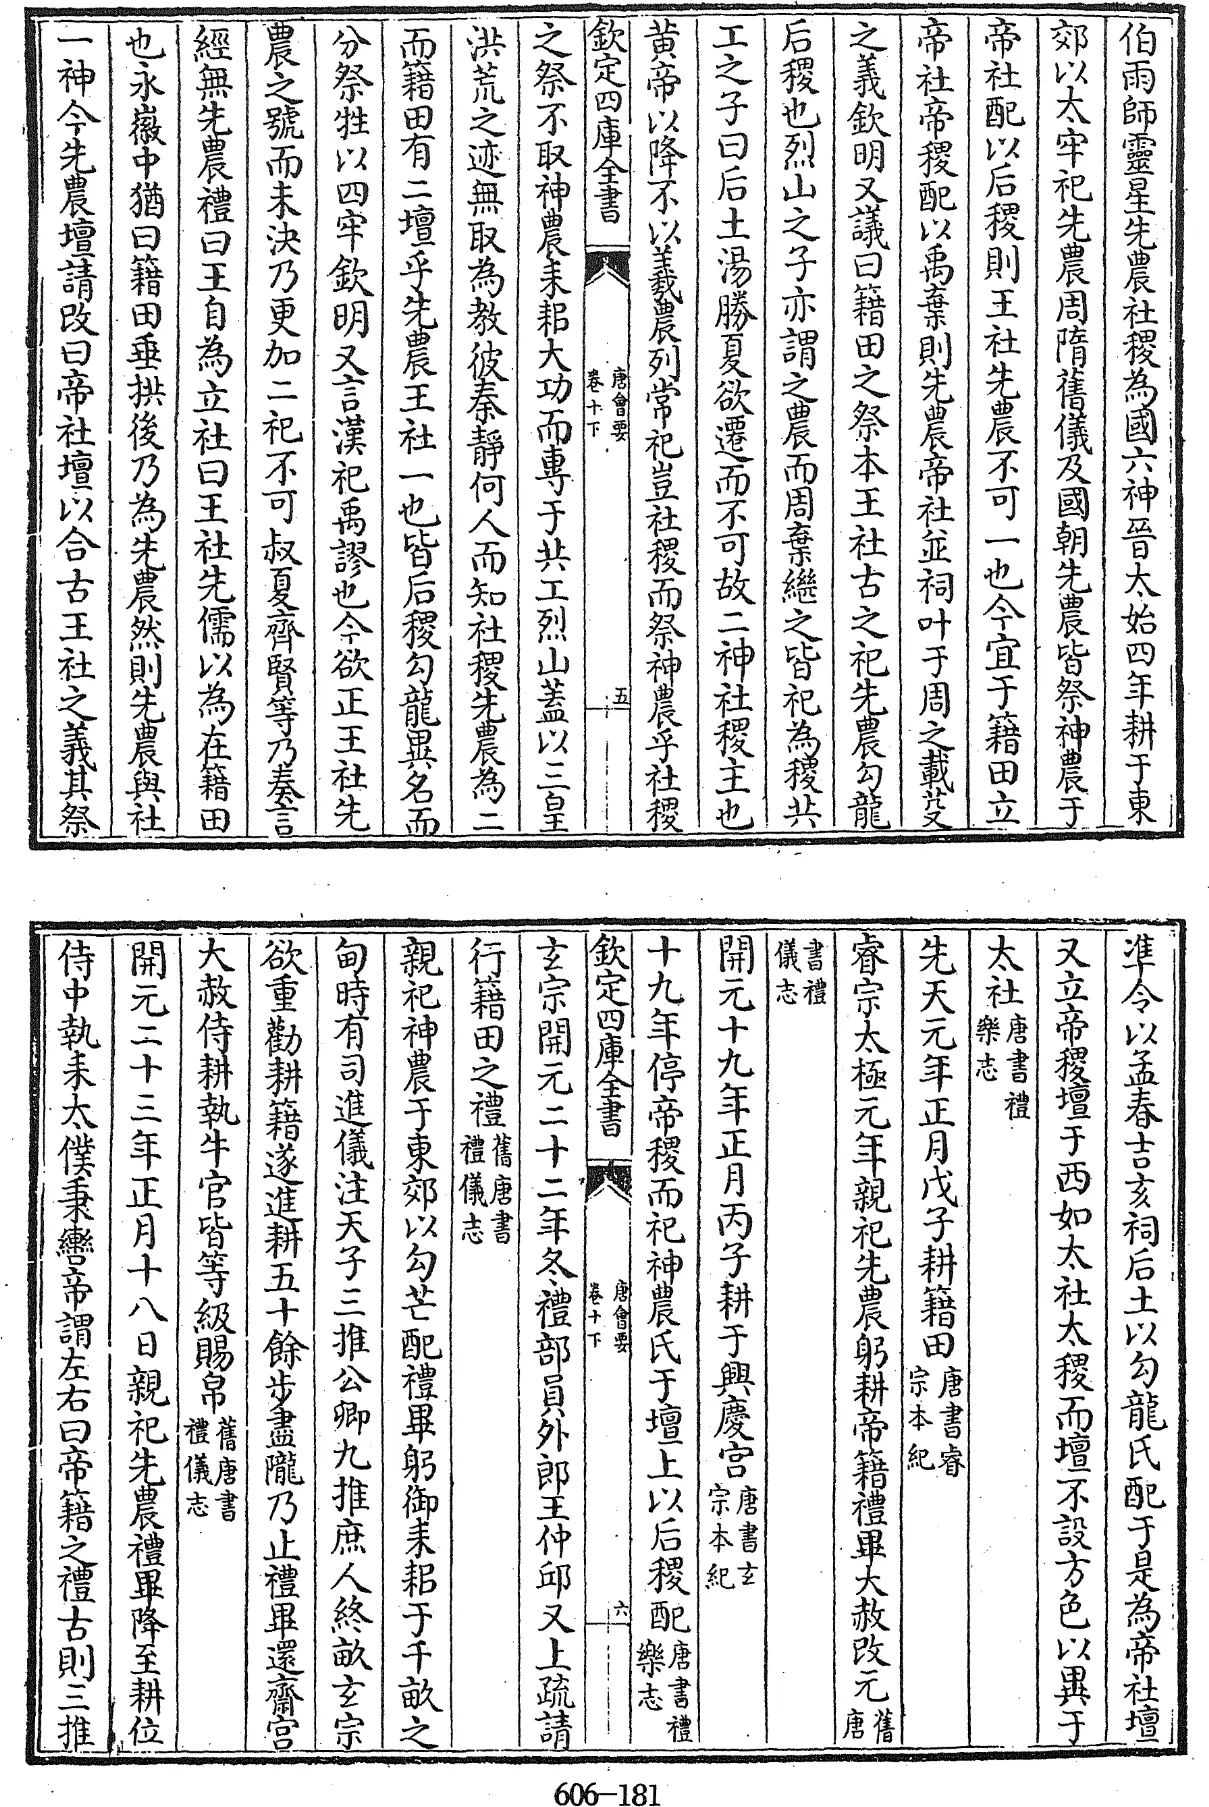 伯雨師靈星先農社稷為國六神晉太始四年耕于東
郊以太牢祀先農周隋舊儀及國朝先農皆祭神農于
帝社配以后稷則王社先農不可一也今宜于籍田立
帝社帝稷配以禹棄則先農帝社並祠叶于周之載芟
之義欽明又議曰籍田之祭本王社古之祀先農勾龍
后稷也烈山之子亦謂之農而周棄繼之皆祀為稷共
工之子曰后土湯勝夏欲遷而不可故二神社稷主也
黄帝以降不以羲農列常祀豈社稷而祭神農乎社稷
欽定四庫全書
唐會要
卷十下
五
之祭不取神農耒耜大功而專于共工烈山蓋以三皇
洪荒之迹無取為教彼秦靜何人而知社稷先農為二
而籍田有二壇乎先農王社一也皆后稷勾龍異名而
分祭牲以四牢欽明又言漢祀禹謬也今欲正王社先
農之號而未決乃更加二祀不可叔夏齊賢等乃奏言
經無先農禮曰王自為立社曰王社先儒以為在籍田
也永徽中猶曰籍田垂拱後乃為先農然則先農與社
一神今先農壇請改曰帝社壇以合古王社之義其祭
準令以孟春吉亥祠后土以勾龍氏配于是為帝社壇
又立帝稷壇于西如太社太稷而壇不設方色以異于
太社唐書禮樂志
先天元年正月戊子耕籍田唐書睿宗本紀
睿宗太極元年親祀先農躬耕帝籍禮畢大赦改元舊唐
書禮儀志
開元十九年正月丙子耕于興慶宮唐書玄宗本紀
十九年停帝稷而祀神農氏于壇上以后稷配唐書禮樂志
欽定四庫全書
唐會要
卷十下
六
玄宗開元二十二年冬禮部員外郎王仲邱又上疏請
行籍田之禮舊唐書禮儀志
親祀神農于東郊以勾芒配禮畢躬御耒耜于千畝之
甸時有司進儀注天子三推公卿九推庶人終畝玄宗
欲重勸耕籍遂進耕五十餘步盡隴乃止禮畢還齋宮
大赦侍耕執牛官皆等級賜帛舊唐書禮儀志
開元二十三年正月十八日親祀先農禮畢降至耕位
侍中執耒太僕秉轡帝謂左右曰帝籍之禮古則三推
606-181